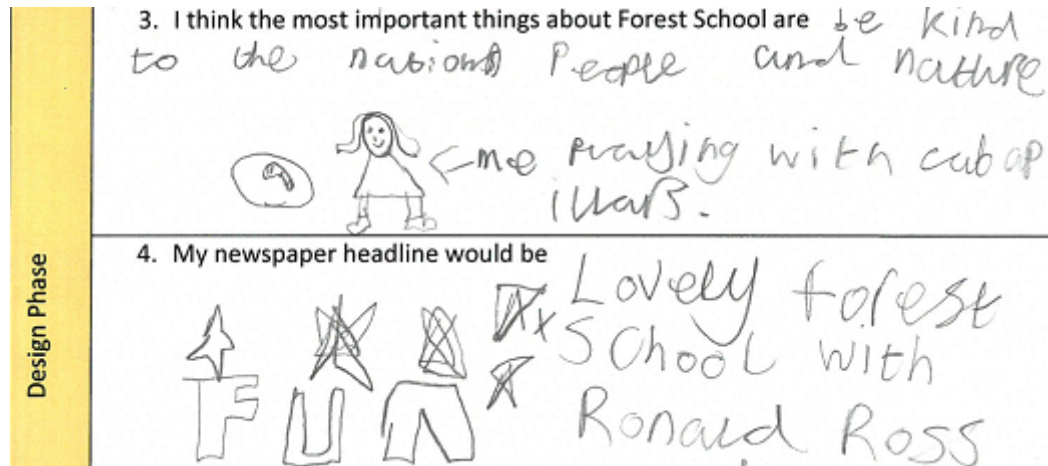 3. I think the most important things about Forest School are be kind
to the nations People and nathure
<-me praying with cabap
illars.
Design Phase
4. My newspaper headline would be
Lovely forest
School with
Ronald Ross
FUN